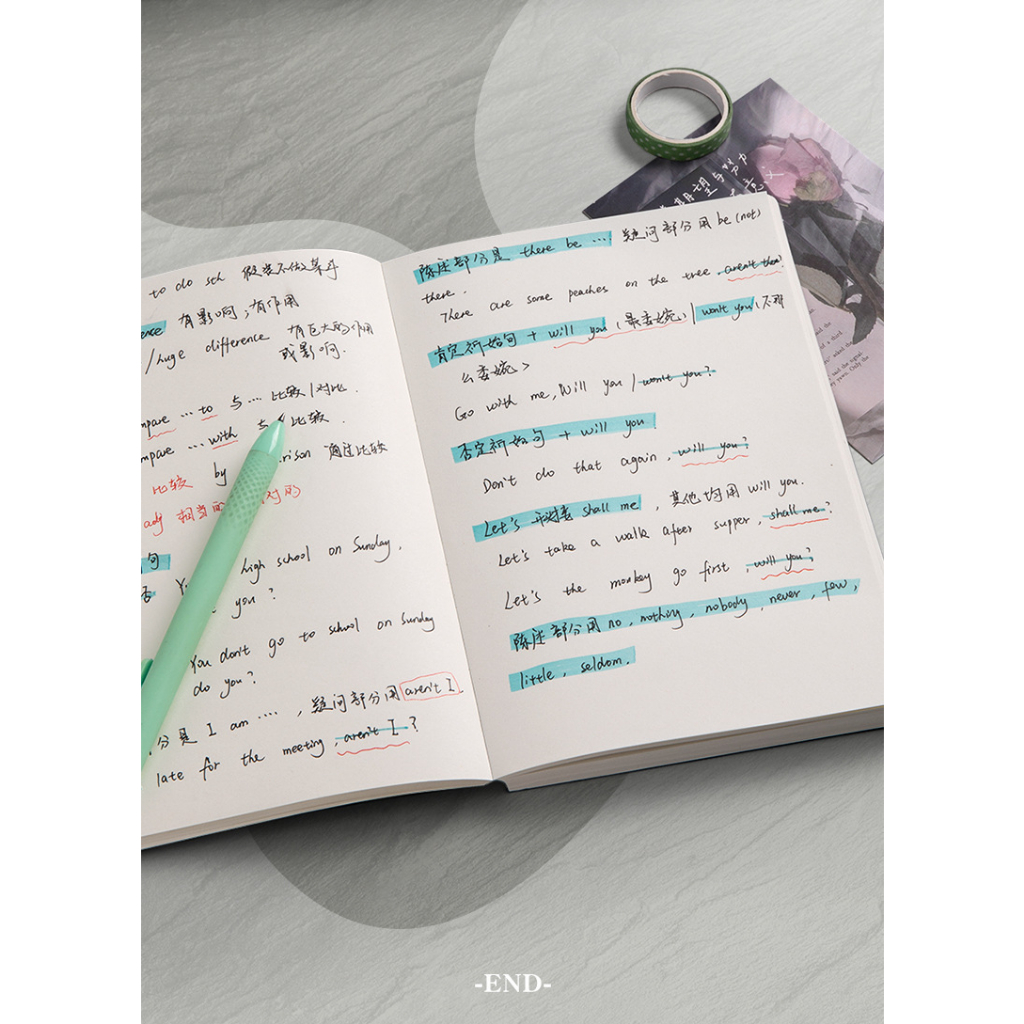 to do sth 假装不做某事
ence 有影响;有作用
/huge difference 有巨大的作用
或影响.
mpare … to 与… 比较/对比.
mpare … with 与 比较.
比较 by rison 通过比较
adj 相当的 对的
句
否 high school on Sunday,
you?
You don't go to school on Sunday
do you?
分是 I am …., 疑问部分用 aren't I.
late for the meeting, aren't I?
陈述部分是 there be … 疑问部分用 be (not)
there.
There are some peaches on the tree, aren't there?
肯定祈始句 + will you (最委婉) / won't you (不那
么委婉>
Go with me, Will you / won't you?
否定祈始句 + will you
Don't do that again, will you?
Let's shall me, 其他均用 will you.
Let's take a walk after supper, shall me?
Let's the monkey go first, will you?
陈述部分用 no, nothing, nobody, never, few,
little, seldom.
期望与努力
the
-END-